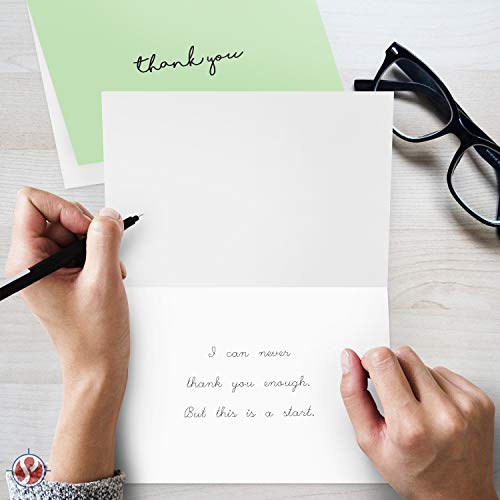 thank you
I can never
thank you enough.
But this is a start.